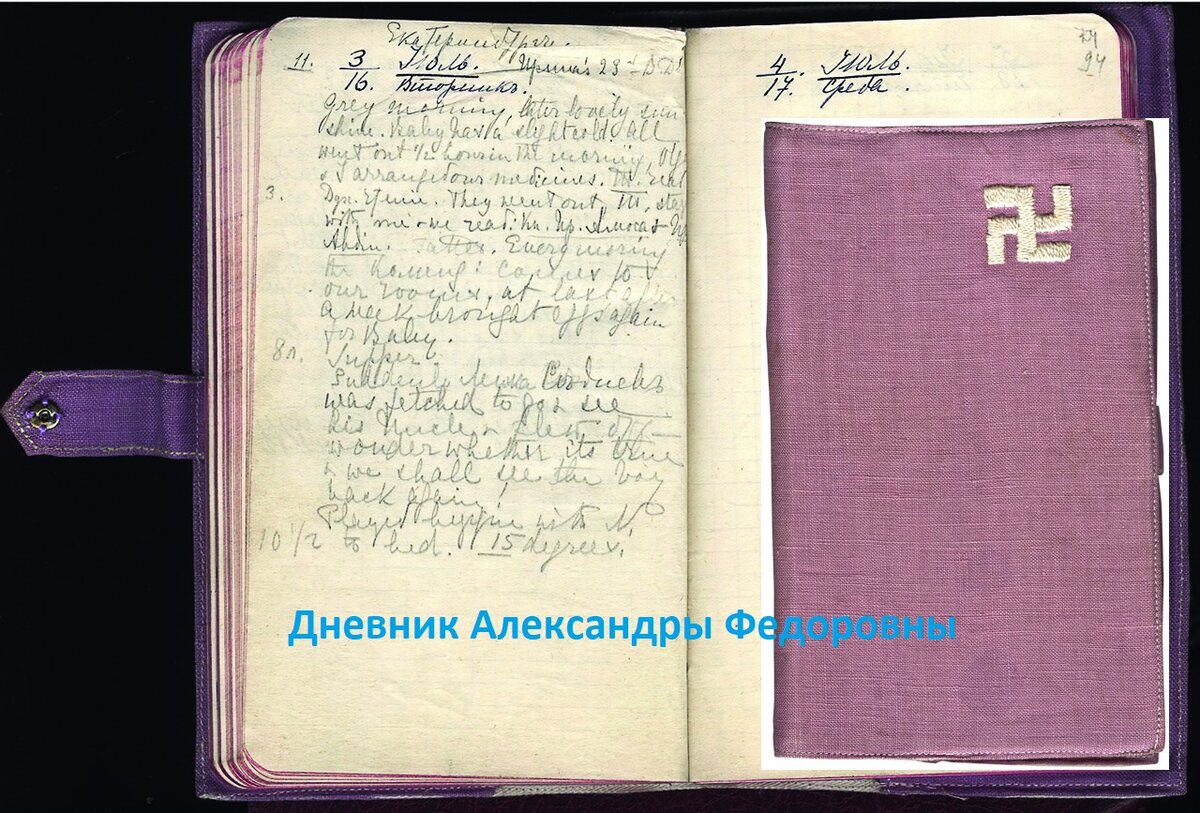 Екатеринбург.
11. 3/16. Июль. Ирина's 23rd B.D.
Вторникъ.
Grey morning, later lovely sun
shine. Baby has a slight cold. All
went out ½ hour in the morning, Olga
& I arranged our medicines. T. read
3. Дух. Чтение. They went out, T. stay
with me & we read: Кн. Пр. Амоса & Пр.
Авдия. Tatted. Every morning
the Komend: comes to
our rooms, at last after
a week brought eggs again
for Baby.
8h. Supper.
Suddenly Лешка Седневъ
was fetched to go & see
his Uncle & flew off –
wonder whether its true
& we shall see the boy
back again!
Played bezique with N.
10½ to bed. 15 degrees.
4/17. Июль.
Среда.
94
Дневник Александры Федоровны